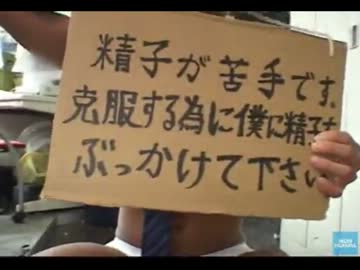 精子が苦手です。
克服する為に僕に精子を
ぶっかけて下さい